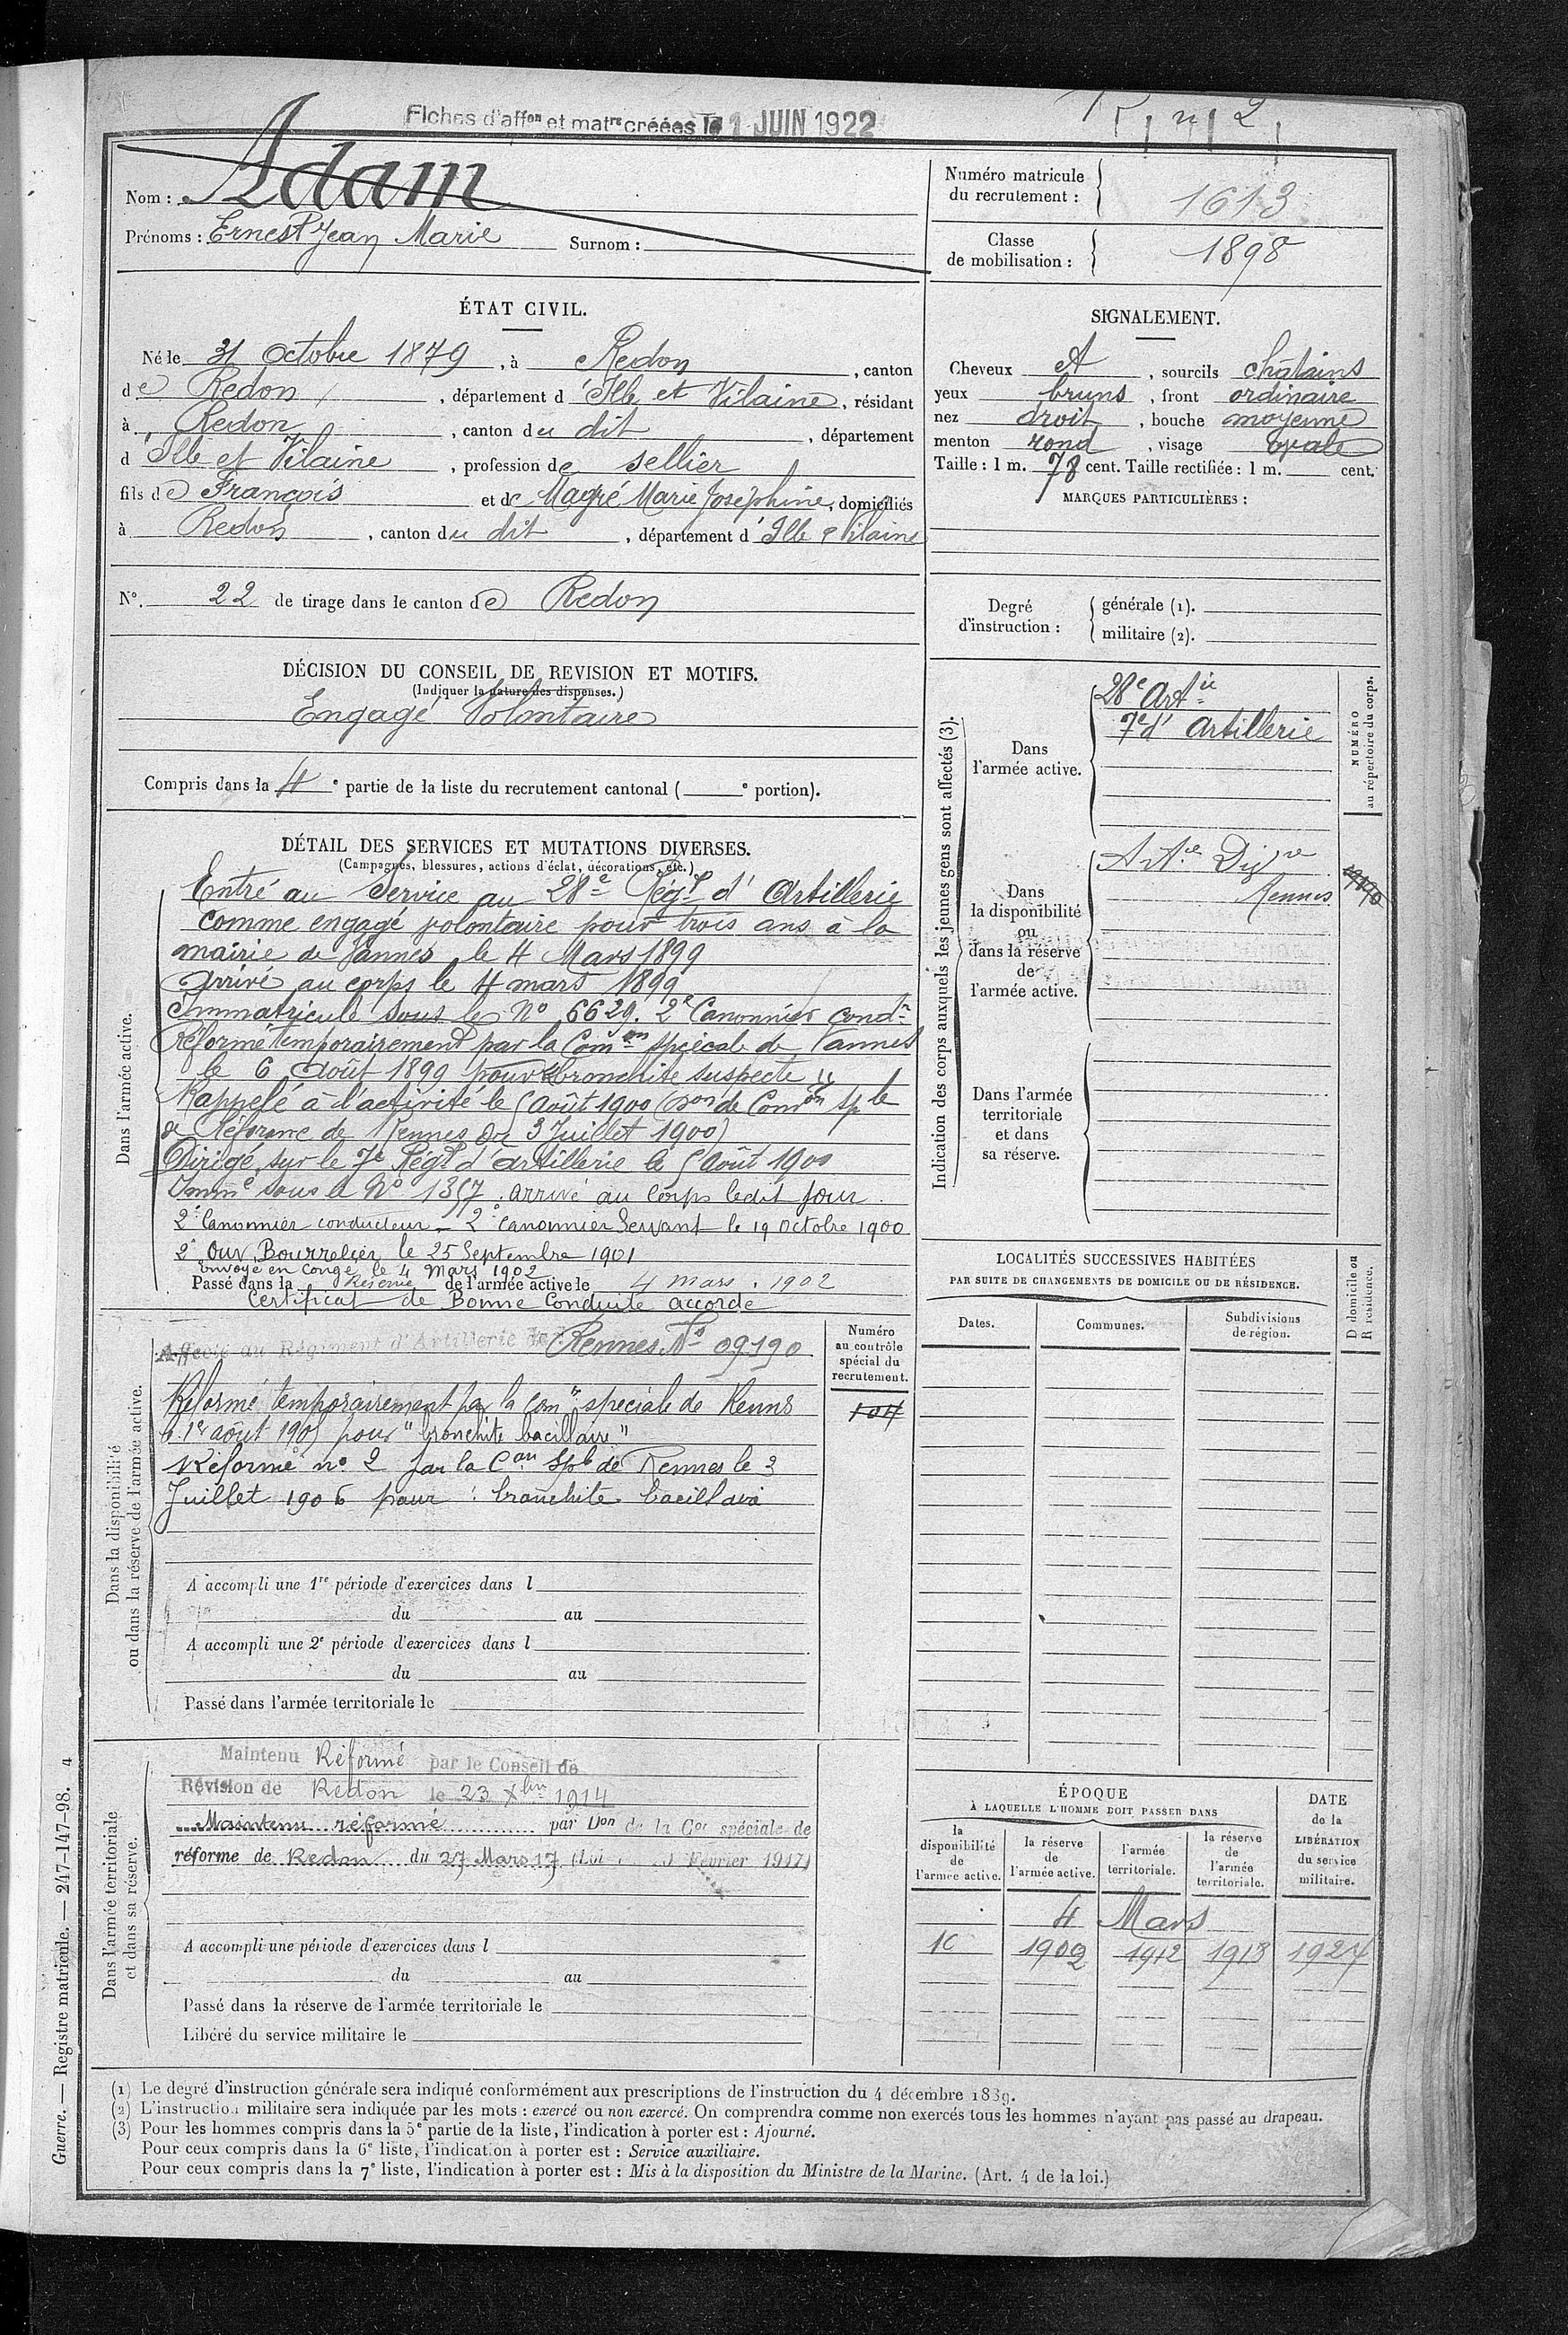 Fiches d'affon et matre créées le 1 JUIN 1922
R n 2
Nom : Adam
Prénoms : Ernest Jean Marie Surnom :
Numéro matricule
du recrutement : 1613
Classe
de mobilisation : 1898
ÉTAT CIVIL.
Né le 31 Octobre 1879, à Redon, canton
de Redon, département d'Ille et Vilaine, résidant
à Redon, canton du dit, département
d'Ille et Vilaine, profession de sellier
fils de François et de Magré Marie Joséphine, domiciliés
à Redon, canton du dit, département d'Ille & Vilaine
N°. 22 de tirage dans le canton de Redon
SIGNALEMENT.
Cheveux et, sourcils châtains
yeux bruns, front ordinaire
nez droit, bouche moyenne
menton rond, visage ovale
Taille : 1 m. 78 cent. Taille rectifiée : 1 m. cent.
MARQUES PARTICULIÈRES :
Degré
d'instruction :
générale (1).
militaire (2).
DÉCISION DU CONSEIL DE REVISION ET MOTIFS.
(Indiquer la nature des dispenses.)
Engagé Volontaire
Compris dans la 4e partie de la liste du recrutement cantonal ( e portion).
DÉTAIL DES SERVICES ET MUTATIONS DIVERSES.
(Campagnes, blessures, actions d'éclat, décorations, etc.)
Dans l'armée active.
Entré au Service au 28e Régt d'Artillerie
comme engagé volontaire pour trois ans à la
mairie de Vannes le 4 Mars 1899
Arrivé au corps le 4 mars 1899
Immatriculé sous le N° 6629. 2e Canonnier condr
Réformé temporairement par la Comon spéciale de Vannes
le 6 Août 1899 pour "bronchite suspecte"
Rappelé à l'activité le 5 Août 1900 (Don de Comon Sple
de Réforme de Rennes du 3 Juillet 1900)
Dirigé sur le 7e Régt d'artillerie le 5 Août 1900
Imme sous le N° 1357. arrivé au Corps ledit jour.
2e Canonnier conducteur - 2e Canonnier Servant le 19 Octobre 1900
2e Ouv. Bourrelier le 25 Septembre 1901
Envoyé en Congé le 4 Mars 1902
Passé dans la Réserve de l'armée active le 4 mars 1902
Certificat de Bonne Conduite accordé
Dans la disponibilité
ou dans la réserve de l'armée active.
Affecté au Régiment d'Artillerie de Rennes N° 09190
Réformé temporairement par la Comon spéciale de Rennes
le 1er août 1905 pour "bronchite bacillaire"
Réformé n° 2 par la Con Sple de Rennes le 3
Juillet 1906 pour : bronchite bacillaire
Numéro
au contrôle
spécial du
recrutement.
104
A accompli une 1re période d'exercices dans l
du au
A accompli une 2e période d'exercices dans l
du au
Passé dans l'armée territoriale le
Dans l'armée territoriale
et dans sa réserve.
Maintenu Réformé par le Conseil de
Révision de Redon le 23 Xbre 1914
Maintenu réformé par Don de la Con spéciale de
réforme de Redon du 27 Mars 17 (Loi Février 1917)
A accompli une période d'exercices dans l
du au
Passé dans la réserve de l'armée territoriale le
Libéré du service militaire le
Indication des corps auxquels les jeunes gens sont affectés (3).
Dans
l'armée active.
28e Artie
7e d'Artillerie
NUMÉRO
au répertoire du corps.
Dans
la disponibilité
ou
dans la réserve
de
l'armée active.
Artie Dire
Rennes
Dans l'armée
territoriale
et dans
sa réserve.
LOCALITÉS SUCCESSIVES HABITÉES
PAR SUITE DE CHANGEMENTS DE DOMICILE OU DE RÉSIDENCE.
Dates.
Communes.
Subdivisions
de région.
D domicile ou
R résidence.
ÉPOQUE
À LAQUELLE L'HOMME DOIT PASSER DANS
la
disponibilité
de
l'armée active.
la réserve
de
l'armée active.
l'armée
territoriale.
la réserve
de
l'armée
territoriale.
DATE
de la
LIBÉRATION
du service
militaire.
4 Mars
1902 1912 1918 1924
(1) Le degré d'instruction générale sera indiqué conformément aux prescriptions de l'instruction du 4 décembre 1889.
(2) L'instruction militaire sera indiquée par les mots : exercé ou non exercé. On comprendra comme non exercés tous les hommes n'ayant pas passé au drapeau.
(3) Pour les hommes compris dans la 5e partie de la liste, l'indication à porter est : Ajourné.
Pour ceux compris dans la 6e liste, l'indication à porter est : Service auxiliaire.
Pour ceux compris dans la 7e liste, l'indication à porter est : Mis à la disposition du Ministre de la Marine. (Art. 4 de la loi.)
Guerre. — Registre matricule. — 247-147-98. 4